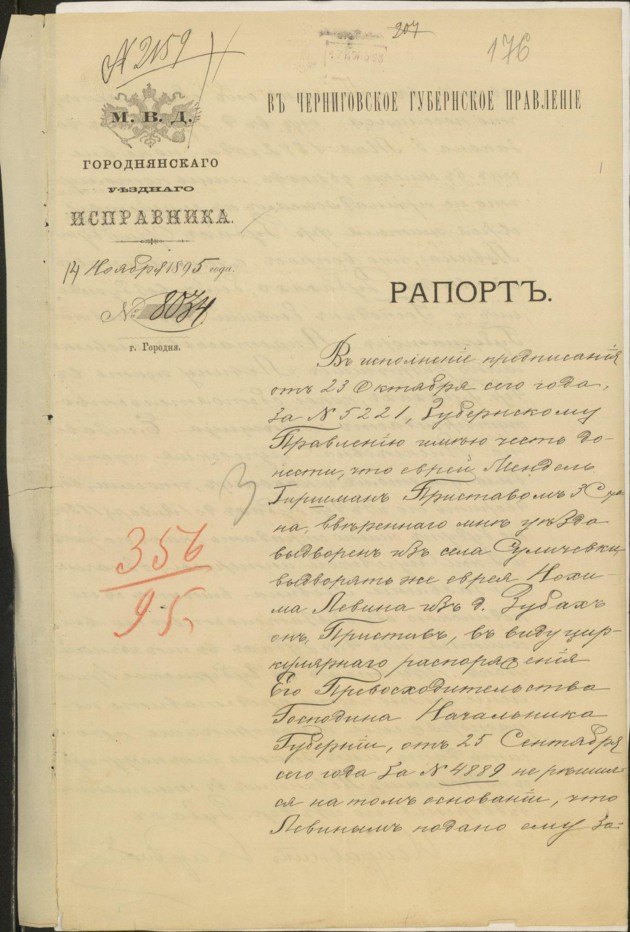 № 2159
207
176
М. В. Д.
ГОРОДНЯНСКАГО
УѢЗДНАГО
ИСПРАВНИКА.
14 Ноября 1895 года.
№ 8034
г. Городня.
ВЪ ЧЕРНИГОВСКОЕ ГУБЕРНСКОЕ ПРАВЛЕНІЕ
РАПОРТЪ.
Въ исполненіе предписанія
отъ 23 Октября сего года,
за № 5221, Губернскому
Правленію имѣю честь до-
нести, что еврей Мендель
Гиршманъ Приставомъ 3 Ст
на, ввѣреннаго мнѣ уѣзда
выдворенъ изъ села
выдворять же еврея Нохи-
ма Левина изъ д. Зубахъ
онъ, Приставъ, въ виду цир-
кулярнаго распоряженія
Его Превосходительства
Господина Начальника
Губерніи, отъ 25 Сентября
сего года за № 4889 не рѣшил
ся на томъ основаніи, что
Левинымъ подано ему за-
3
356
95.